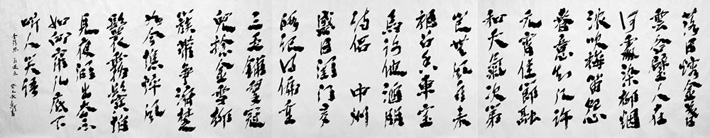 落日熔金暮
雲合璧人在
何處染柳煙
濃吹梅笛怨
春意知幾許
元宵佳節融
和天氣次第
豈無風雨來
相召香車寶
馬謝他酒朋
詩侶 中州
盛日閨門多
暇記得偏重
三五鋪翠冠
兒捻金雪柳
簇帶爭濟楚
如今憔悴風
鬟霧鬢怕
見夜間出去不
如向簾儿底下
听人笑語
李清照 永遇樂